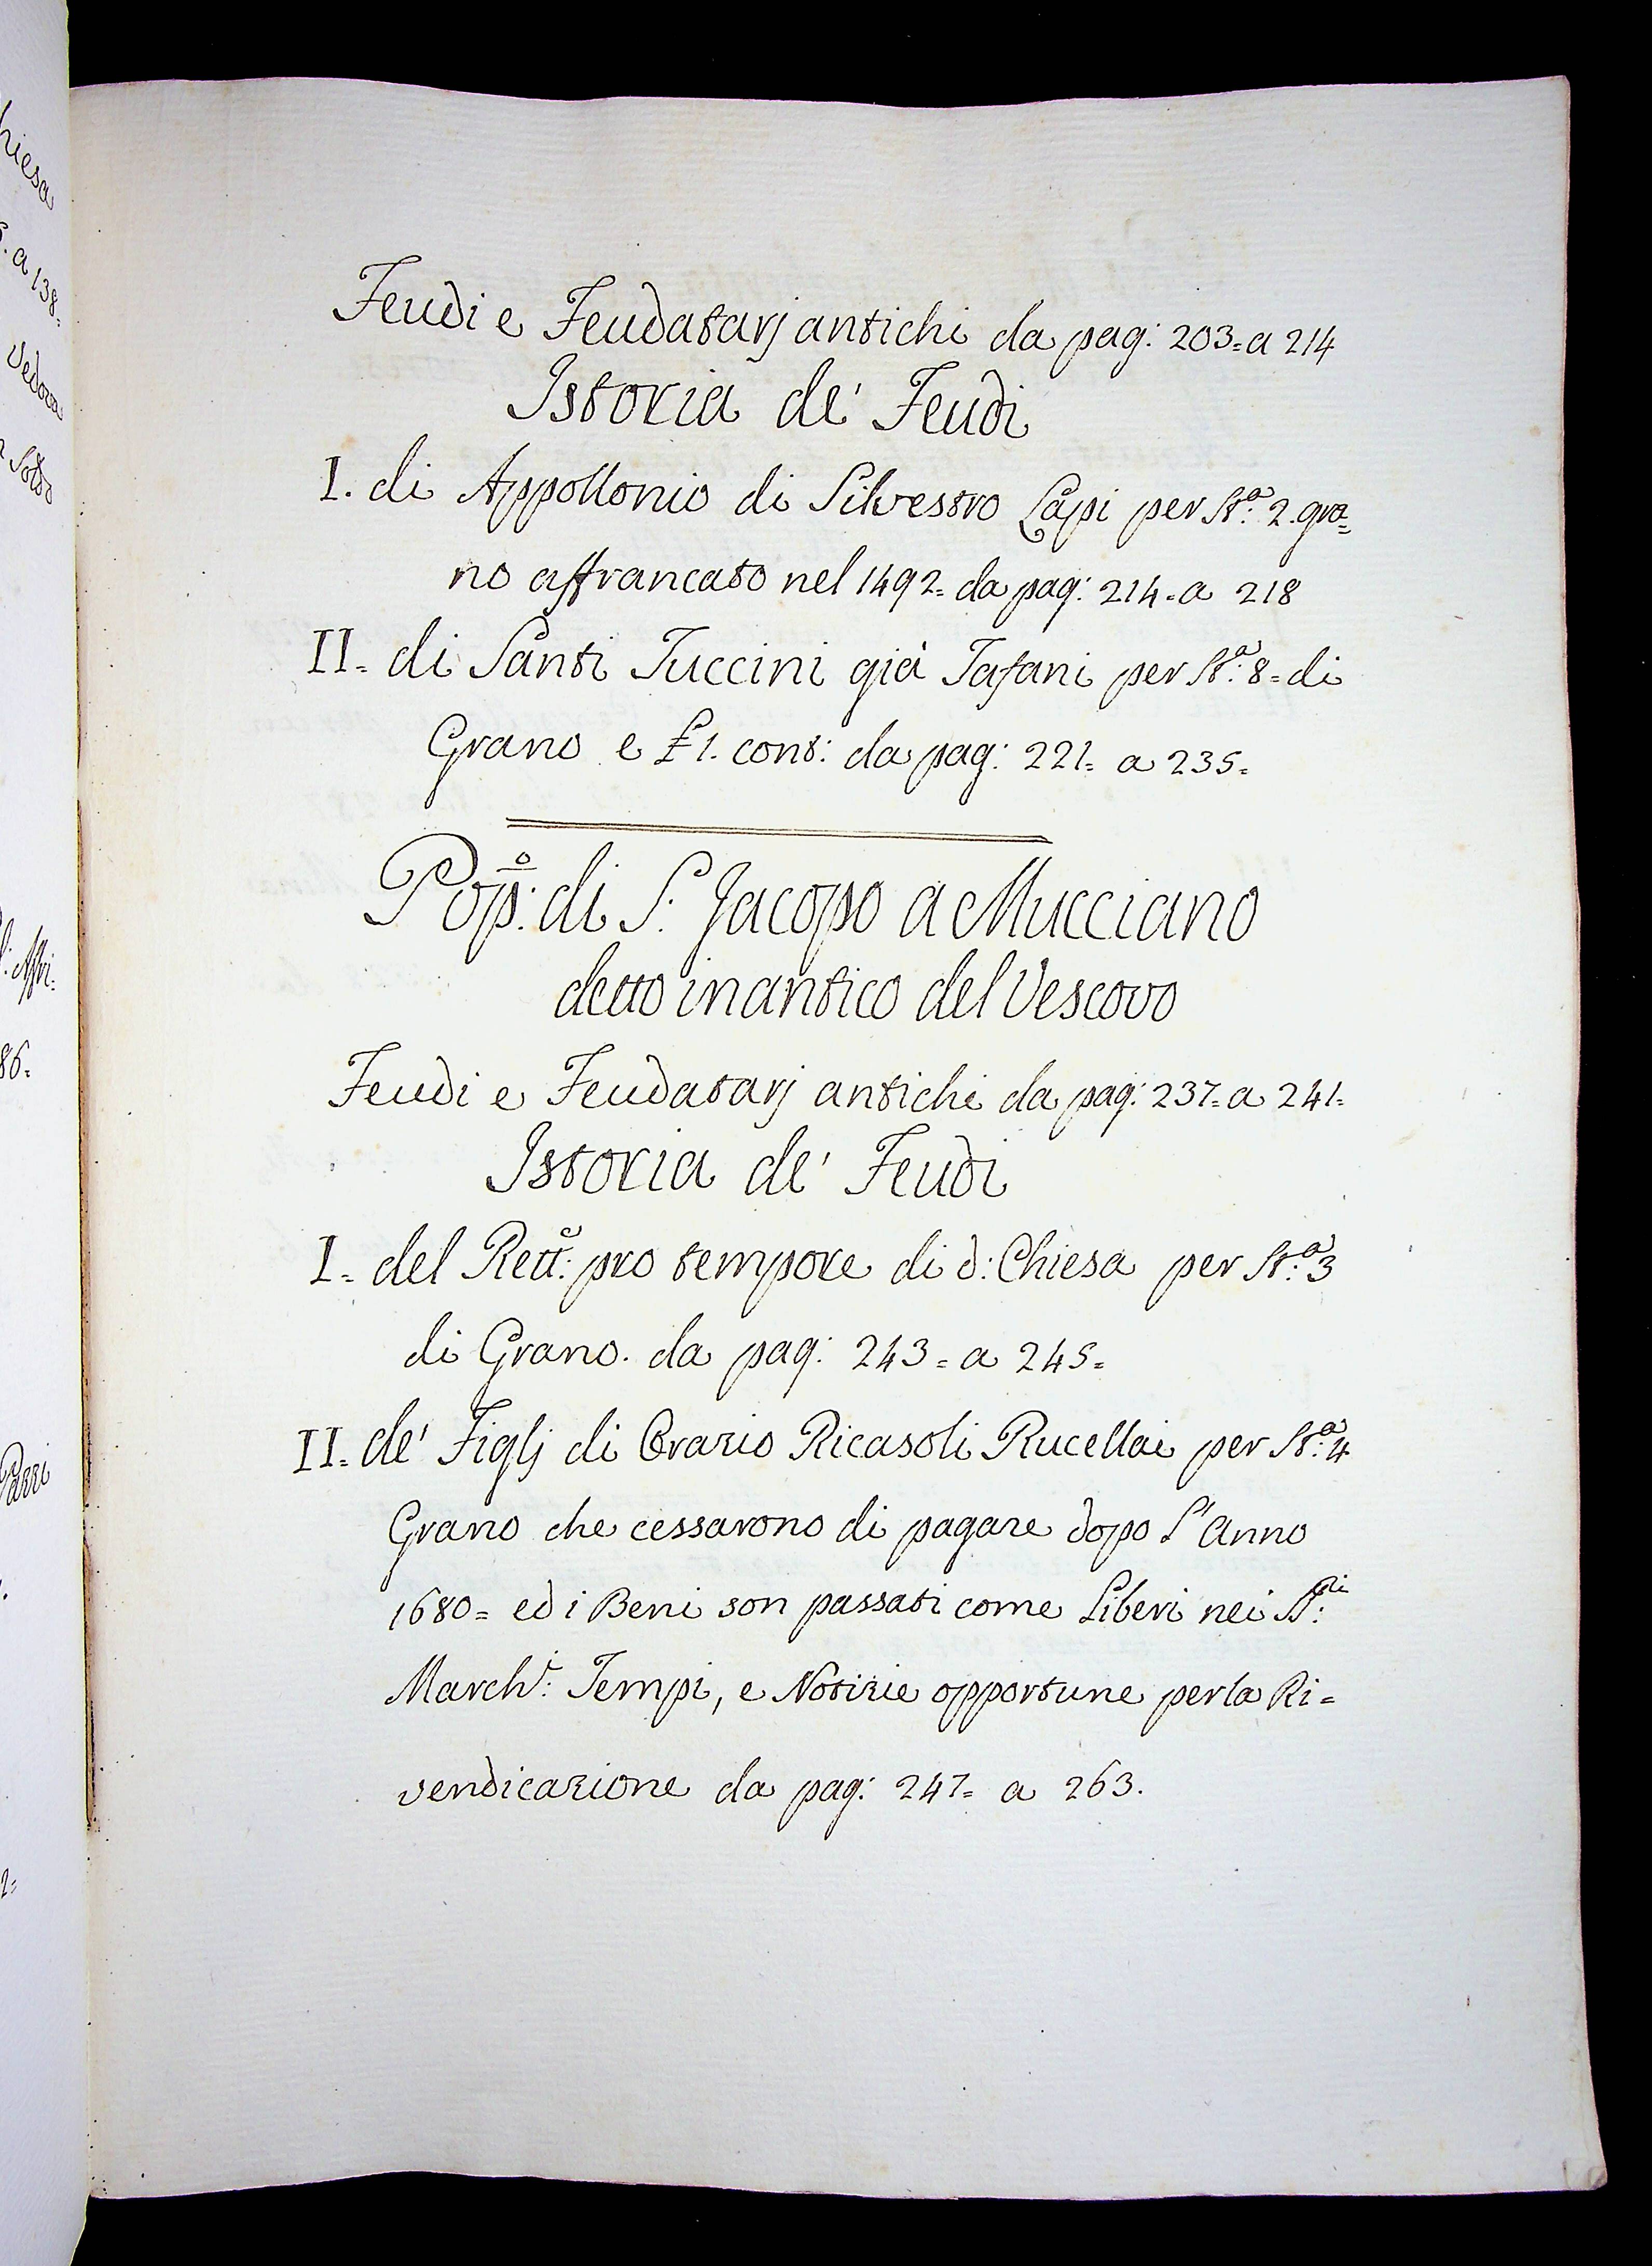 Feudi e Feudatarj antichi da pag: 203= a 214
Istoria de' Feudi
I. di Appollonio di Silvestro Lapi per St.ª 2. gra=
no affrancato nel 1492= da pag: 214= a 218
II= di Santi Tuccini già Tafani per St.ª 8= di
Grano e £ 1. cont: da pag: 221= a 235=
Pop:º di S. Jacopo a Mucciano
detto in antico del Vescovo
Feudi e Feudatarj antichi da pag: 237= a 241=
Istoria de' Feudi
I= del Rett:e pro tempore di d: Chiesa per St:ª 3
di Grano. da pag: 243= a 245=
II= de' Figlj di Orazio Ricasoli Rucellai per St:ª 4
Grano che cessarono di pagare dopo l'Anno
1680= ed i Beni son passati come Liberi nei SS:ri
March:i Tempi, e Notizie opportune per la Ri=
vendicazione da pag: 247= a 263.
hiesa
. a 138=
Vedova
Sotto
86=